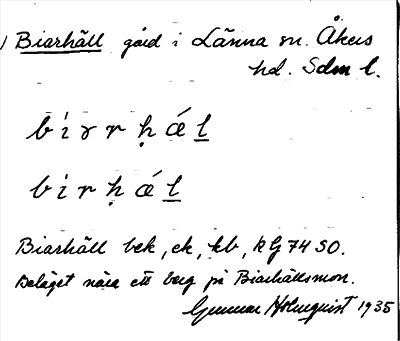 Biarhäll gård i Länna sn. Åkers
hd. Sdm l.
bi´ɤrḥǽl̲
birḥǽl̲
Biarhäll bek, ek, kb, kG 74 SO.
Beläget nära ett berg på Biarhällsmon.
Gunnar Holmquist 1935